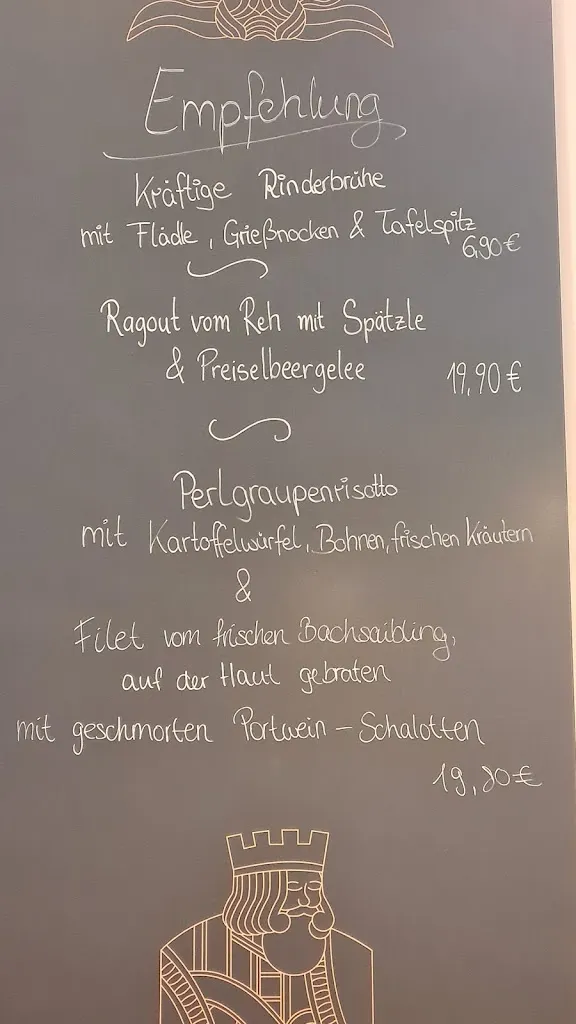 Empfehlung
Kräftige Rinderbrühe
mit Flädle, Grießnocken & Tafelspitz
6,90€
Ragout vom Reh mit Spätzle
& Preiselbeergelee 19,90€
Perlgraupenrisotto
mit Kartoffelwürfel, Bohnen, frischen Kräutern
&
Filet vom frischen Bachsaibling,
auf der Haut gebraten
mit geschmorten Portwein - Schalotten